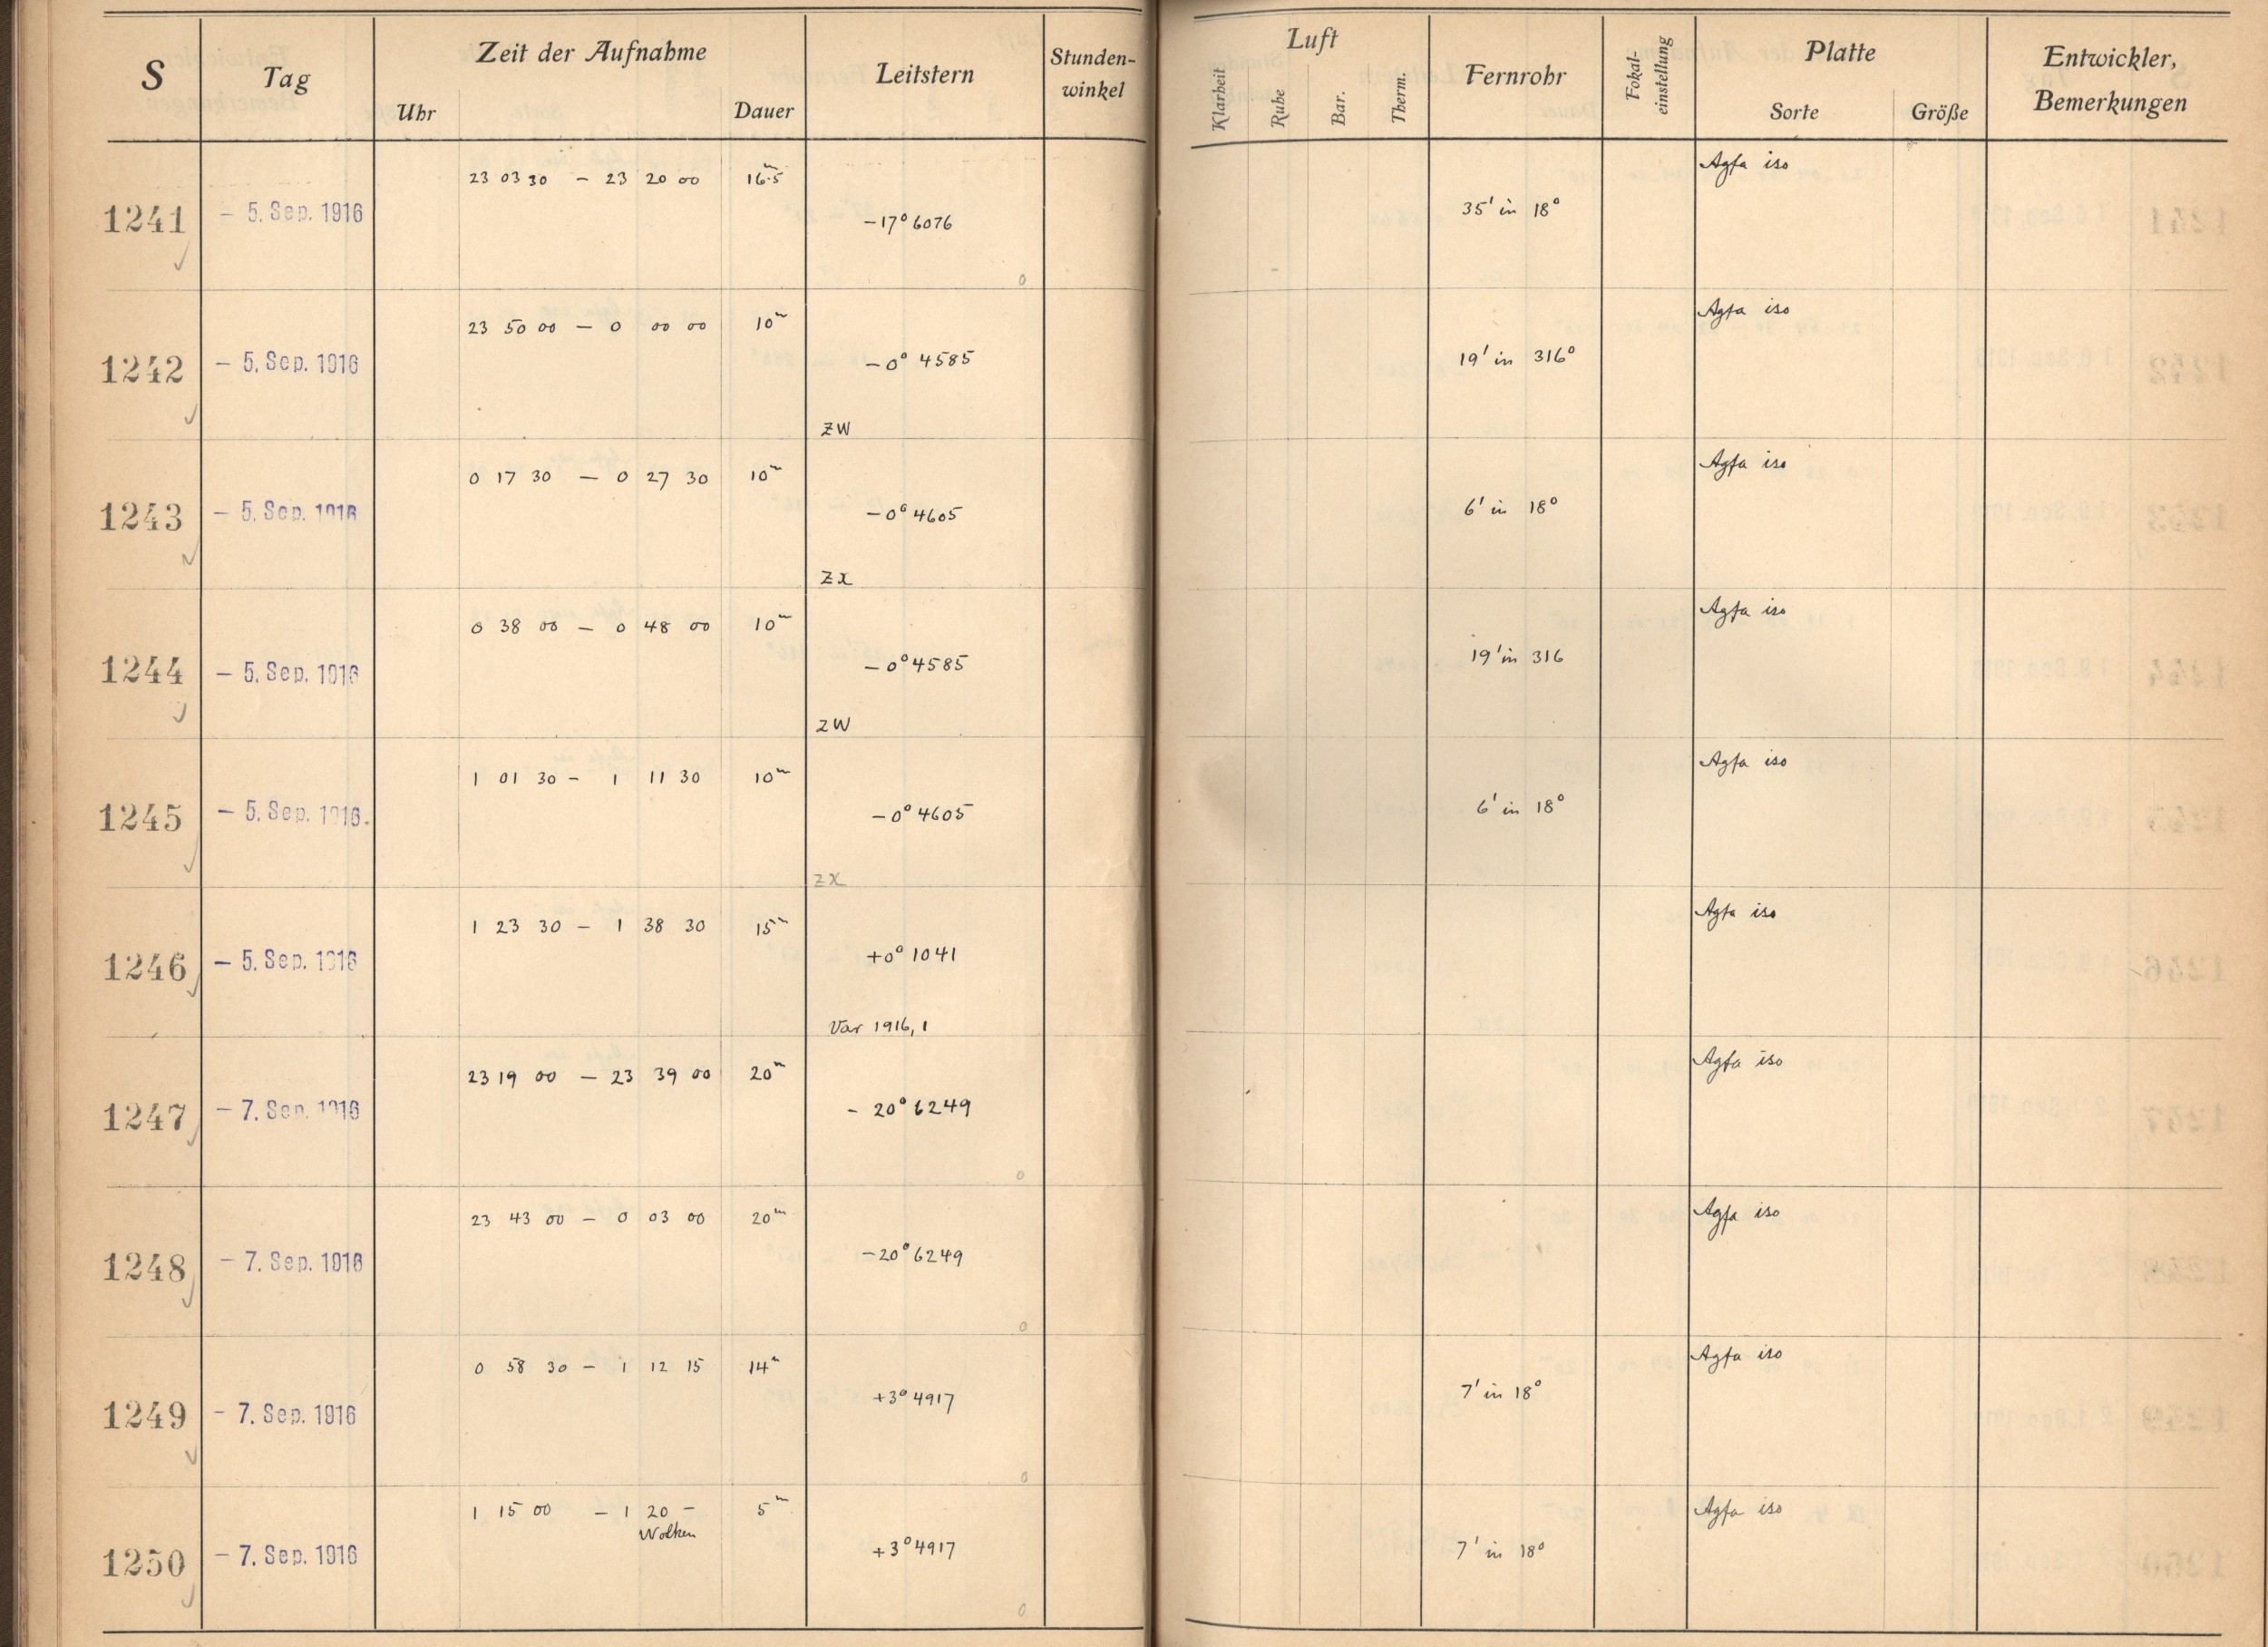 S Tag Zeit der Aufnahme Leitstern Stunden-winkel Luft Fernrohr Fokal-einstellung Platte Entwickler, Bemerkungen
Uhr Dauer Klarheit Ruhe Bar. Therm. Sorte Größe
23 03 30 – 23 20 00 16.5m Agfa iso
1241 – 5. Sep. 1916 –17° 6076 35' in 18°
0
23 50 00 – 0 00 00 10m Agfa iso
1242 – 5. Sep. 1916 –0° 4585 19' in 316°
ZW
0 17 30 – 0 27 30 10m Agfa iso
1243 – 5. Sep. 1916 –0° 4605 6' in 18°
ZX
0 38 00 – 0 48 00 10m Agfa iso
1244 – 5. Sep. 1916 –0° 4585 19' in 316
ZW
1 01 30 – 1 11 30 10m Agfa iso
1245 – 5. Sep. 1916 –0° 4605 6' in 18°
ZX
1 23 30 – 1 38 30 15m Agfa iso
1246 – 5. Sep. 1916 +0° 1041
Var 1916, 1
23 19 00 – 23 39 00 20m Agfa iso
1247 – 7. Sep. 1916 – 20° 6249
0
23 43 00 – 0 03 00 20m Agfa iso
1248 – 7. Sep. 1916 –20° 6249
0
0 58 30 – 1 12 15 14m Agfa iso
1249 – 7. Sep. 1916 +3° 4917 7' in 18°
0
1 15 00 – 1 20 – 5m Agfa iso
Wolken
1250 – 7. Sep. 1916 +3° 4917 7' in 18°
0